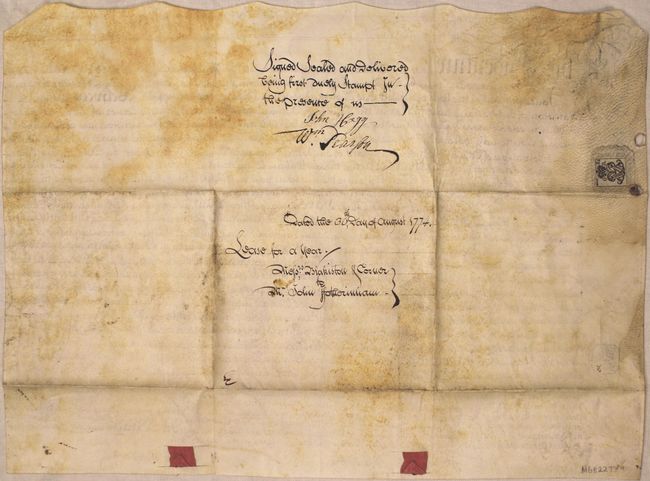 Signed Sealed and Delivered
being first duely Stampt In
the Presence of us
John
Wm Pearson
Dated the 30th Day of August 1774.
Lease for a Year.
Messrs. Blakiston & Corner
to
Mr. John Fotherinham